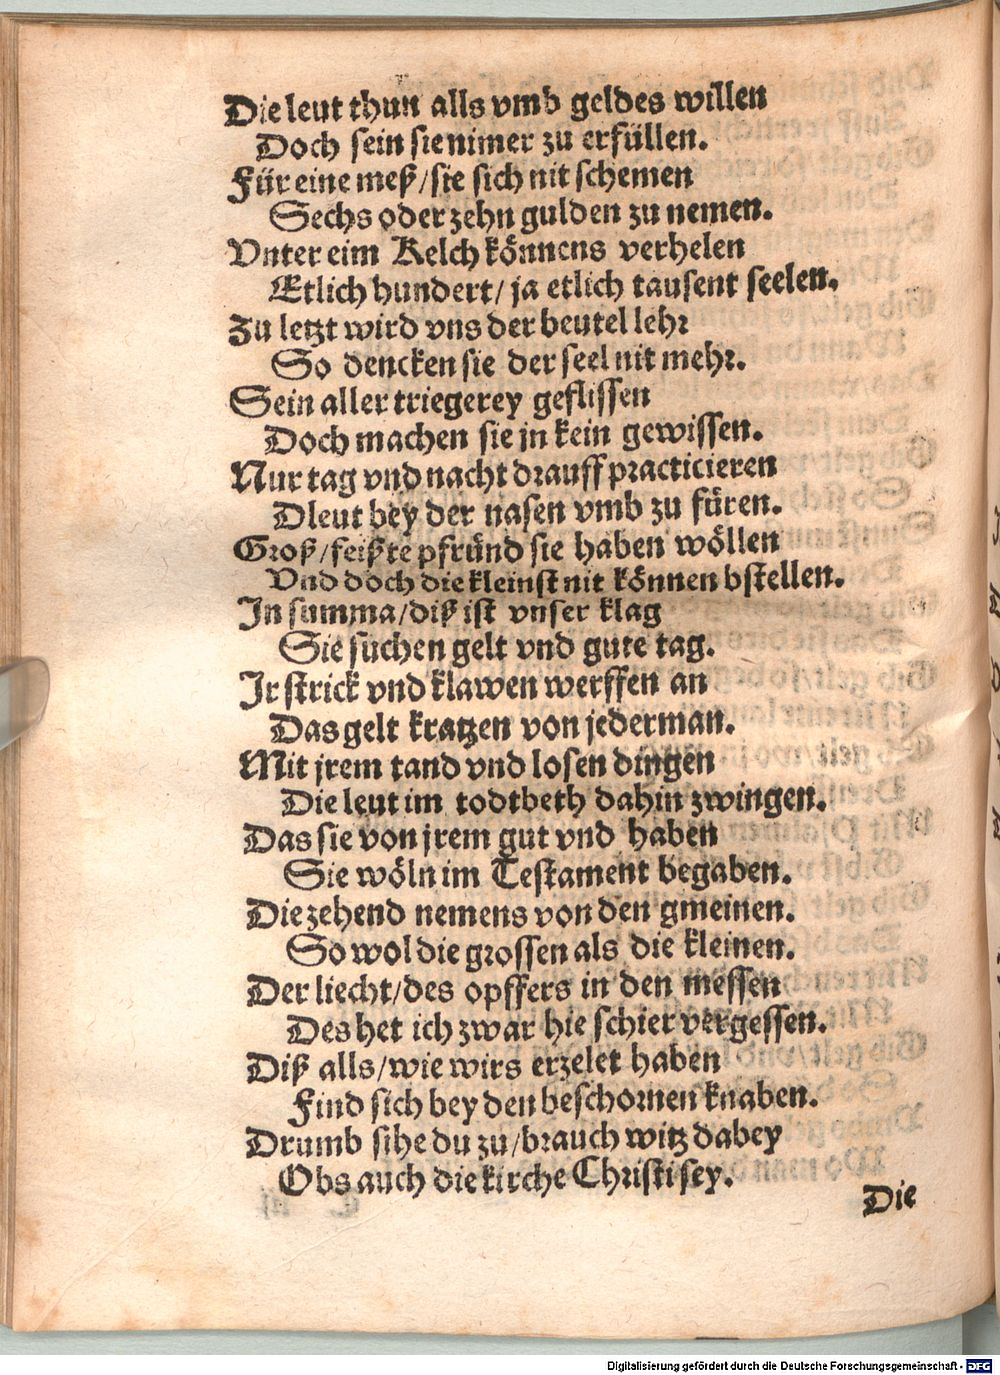 Die leut thun alls vmb geldes willen
Doch sein sie nimer zu erfüllen.
Für eine meß/sie sich nit schemen
Sechs oder zehn gulden zu nemen.
Vnter eim Kelch könnens verhelen
Etlich hundert/ja etlich tausent seelen.
Zu letzt wird vns der beutel lehr
So dencken sie der seel nit mehr.
Sein aller triegerey geflissen
Doch machen sie jn kein gewissen.
Nur tag vnd nacht drauff practicieren
Dleut bey der nasen vmb zu füren.
Groß/feißte pfründ sie haben wöllen
Vnd doch die kleinst nit können bstellen.
In summa/diß ist vnser klag
Sie suchen gelt vnd gute tag.
Ir strick vnd klawen werffen an
Das gelt kratzen von jederman.
Mit jrem tand vnd losen dingen
Die leut im todtbeth dahin zwingen.
Das sie von jrem gut vnd haben
Sie wöln im Testament begaben.
Die zehend nemens von den gmeinen.
So wol die grossen als die kleinen.
Der liecht/des opffers in den messen
Des het ich zwar hie schier vergessen.
Diß alls/wie wirs erzelet haben
Find sich bey den beschornen knaben.
Drumb sihe du zu/brauch witz dabey
Obs auch die kirche Christi sey.
Die
Digitalisierung gefördert durch die Deutsche Forschungsgemeinschaft - DFG